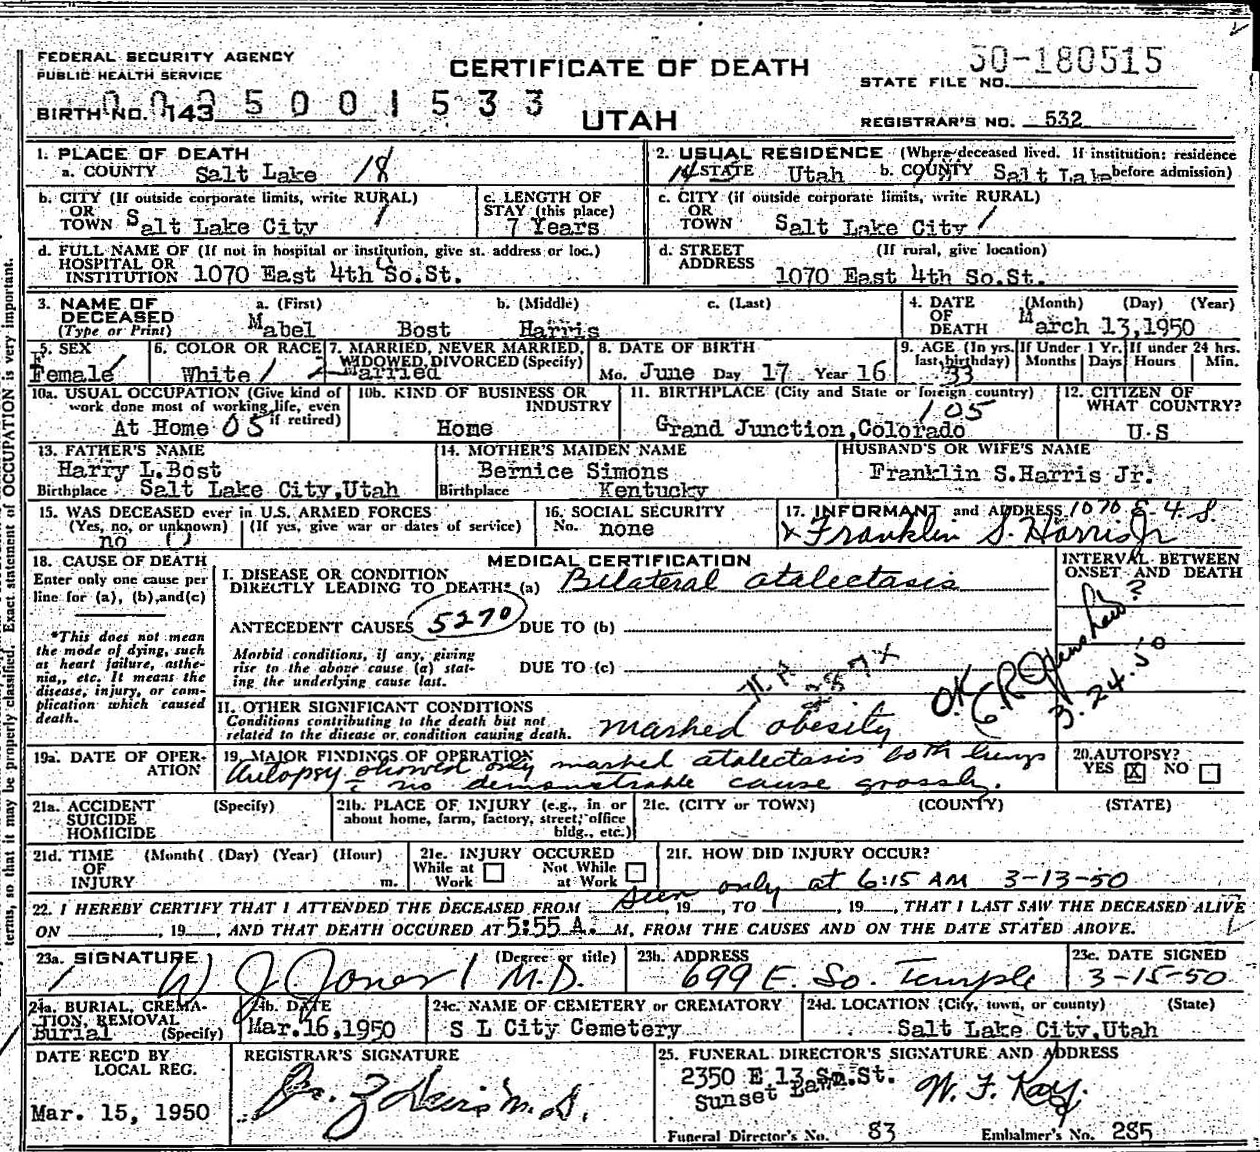 FEDERAL SECURITY AGENCY
PUBLIC HEALTH SERVICE
CERTIFICATE OF DEATH
50-180515
STATE FILE NO.
BIRTH NO. 143
0005001533
UTAH
REGISTRAR'S NO. 532
1. PLACE OF DEATH
a. COUNTY Salt Lake 18
2. USUAL RESIDENCE (Where deceased lived. If institution: residence before admission)
a. STATE Utah b. COUNTY Salt Lake
b. CITY (If outside corporate limits, write RURAL)
OR
TOWN Salt Lake City
c. LENGTH OF
STAY (this place)
7 Years
c. CITY (if outside corporate limits, write RURAL)
OR
TOWN Salt Lake City
d. FULL NAME OF (If not in hospital or institution, give st. address or loc.)
HOSPITAL OR
INSTITUTION 1070 East 4th So.St.
d. STREET (If rural, give location)
ADDRESS
1070 East 4th So.St.
3. NAME OF a. (First) b. (Middle) c. (Last)
DECEASED
(Type or Print) Mabel Bost Harris
4. DATE (Month) (Day) (Year)
OF
DEATH March 13,1950
5. SEX
Female
6. COLOR OR RACE
White
7. MARRIED, NEVER MARRIED,
WIDOWED, DIVORCED (Specify)
Married
8. DATE OF BIRTH
Mo. June Day 17 Year 16
9. AGE (In yrs.
last birthday)
33
If Under 1 Yr.
Months Days
If under 24 hrs.
Hours Min.
10a. USUAL OCCUPATION (Give kind of
work done most of working life, even
if retired)
At Home 05
10b. KIND OF BUSINESS OR
INDUSTRY
Home
11. BIRTHPLACE (City and State or foreign country)
105
Grand Junction,Colorado
12. CITIZEN OF
WHAT COUNTRY?
U.S
13. FATHER'S NAME
Harry L.Bost
Birthplace Salt Lake City,Utah
14. MOTHER'S MAIDEN NAME
Bernice Simons
Birthplace Kentucky
HUSBAND'S OR WIFE'S NAME
Franklin S.Harris Jr.
15. WAS DECEASED ever in U.S. ARMED FORCES
(Yes, no, or unknown) (If yes, give war or dates of service)
no 0
16. SOCIAL SECURITY
No. none
17. INFORMANT and ADDRESS 1070 E-4 S
x Franklin S. Harris Jr
18. CAUSE OF DEATH
Enter only one cause per
line for (a), (b),and(c)
*This does not mean
the mode of dying, such
as heart failure, asthe-
nia,, etc. It means the
disease, injury, or com-
plication which caused
death.
MEDICAL CERTIFICATION
I. DISEASE OR CONDITION
DIRECTLY LEADING TO DEATH* (a) Bilateral atalectasis
ANTECEDENT CAUSES 5270 DUE TO (b)
Morbid conditions, if any, giving
rise to the above cause (a) stat-
ing the underlying cause last.
DUE TO (c)
II. OTHER SIGNIFICANT CONDITIONS
Conditions contributing to the death but not
related to the disease or condition causing death.
marked obesity
INTERVAL BETWEEN
ONSET AND DEATH
OK
3.24.50
19a. DATE OF OPER-
ATION
19. MAJOR FINDINGS OF OPERATION
Autopsy showed only marked atalectasis both lungs
no demonstrable cause grossly.
20. AUTOPSY?
YES X NO
21a. ACCIDENT (Specify)
SUICIDE
HOMICIDE
21b. PLACE OF INJURY (e.g., in or
about home, farm, factory, street, office
bldg., etc.)
21c. (CITY or TOWN) (COUNTY) (STATE)
21d. TIME (Month( (Day) (Year) (Hour)
OF
INJURY m.
21e. INJURY OCCURED
While at Work Not While at Work
21f. HOW DID INJURY OCCUR?
seen only at 6:15 AM 3-13-50
22. I HEREBY CERTIFY THAT I ATTENDED THE DECEASED FROM , 19 , TO , 19 , THAT I LAST SAW THE DECEASED ALIVE
ON , 19 , AND THAT DEATH OCCURED AT 5:55 A. M, FROM THE CAUSES AND ON THE DATE STATED ABOVE.
23a. SIGNATURE (Degree or title)
W J Jones M.D.
23b. ADDRESS
699 E. So. Temple
23c. DATE SIGNED
3-15-50
24a. BURIAL, CREMA-
TION, REMOVAL
Burial (Specify)
24b. DATE
Mar.16,1950
24c. NAME OF CEMETERY or CREMATORY
S L City Cemetery
24d. LOCATION (City, town, or county) (State)
Salt Lake City,Utah
DATE REC'D BY
LOCAL REG.
Mar. 15, 1950
REGISTRAR'S SIGNATURE
25. FUNERAL DIRECTOR'S SIGNATURE AND ADDRESS
2350 E 13 So.St.
Sunset Lawn
W. F. Kay.
Funeral Director's No. 83 Embalmer's No. 285
terms, so that it may be properly classified. Exact statement of OCCUPATION is very important.